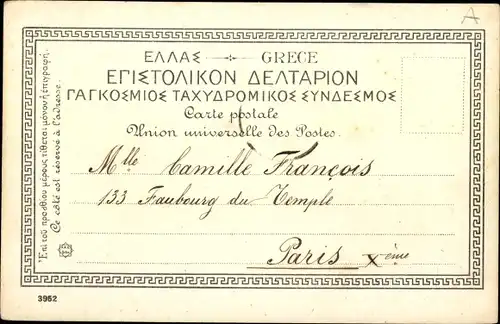 A
ΕΛΛΑΣ GRECE
ΕΓΙΣΤΟΛΙΚΟΝ ΔΕΛΤΑΡΙΟΝ
ΓΑΓΚΟΣΜΙΟΣ ΤΑΧΥΔΡΟΜΙΚΟΣ ΣΥΝΔΕΣΜΟΣ
Carte postale
Union universelle des Postes.
Ἐπὶ τοῦ προσθίου μέρους τίθεται μόνον ἡ ἐπιγραφή.
Ce côté est réservé à l'adresse.
Mlle Camille François
133 Faubourg du Temple
Paris Xème
3952